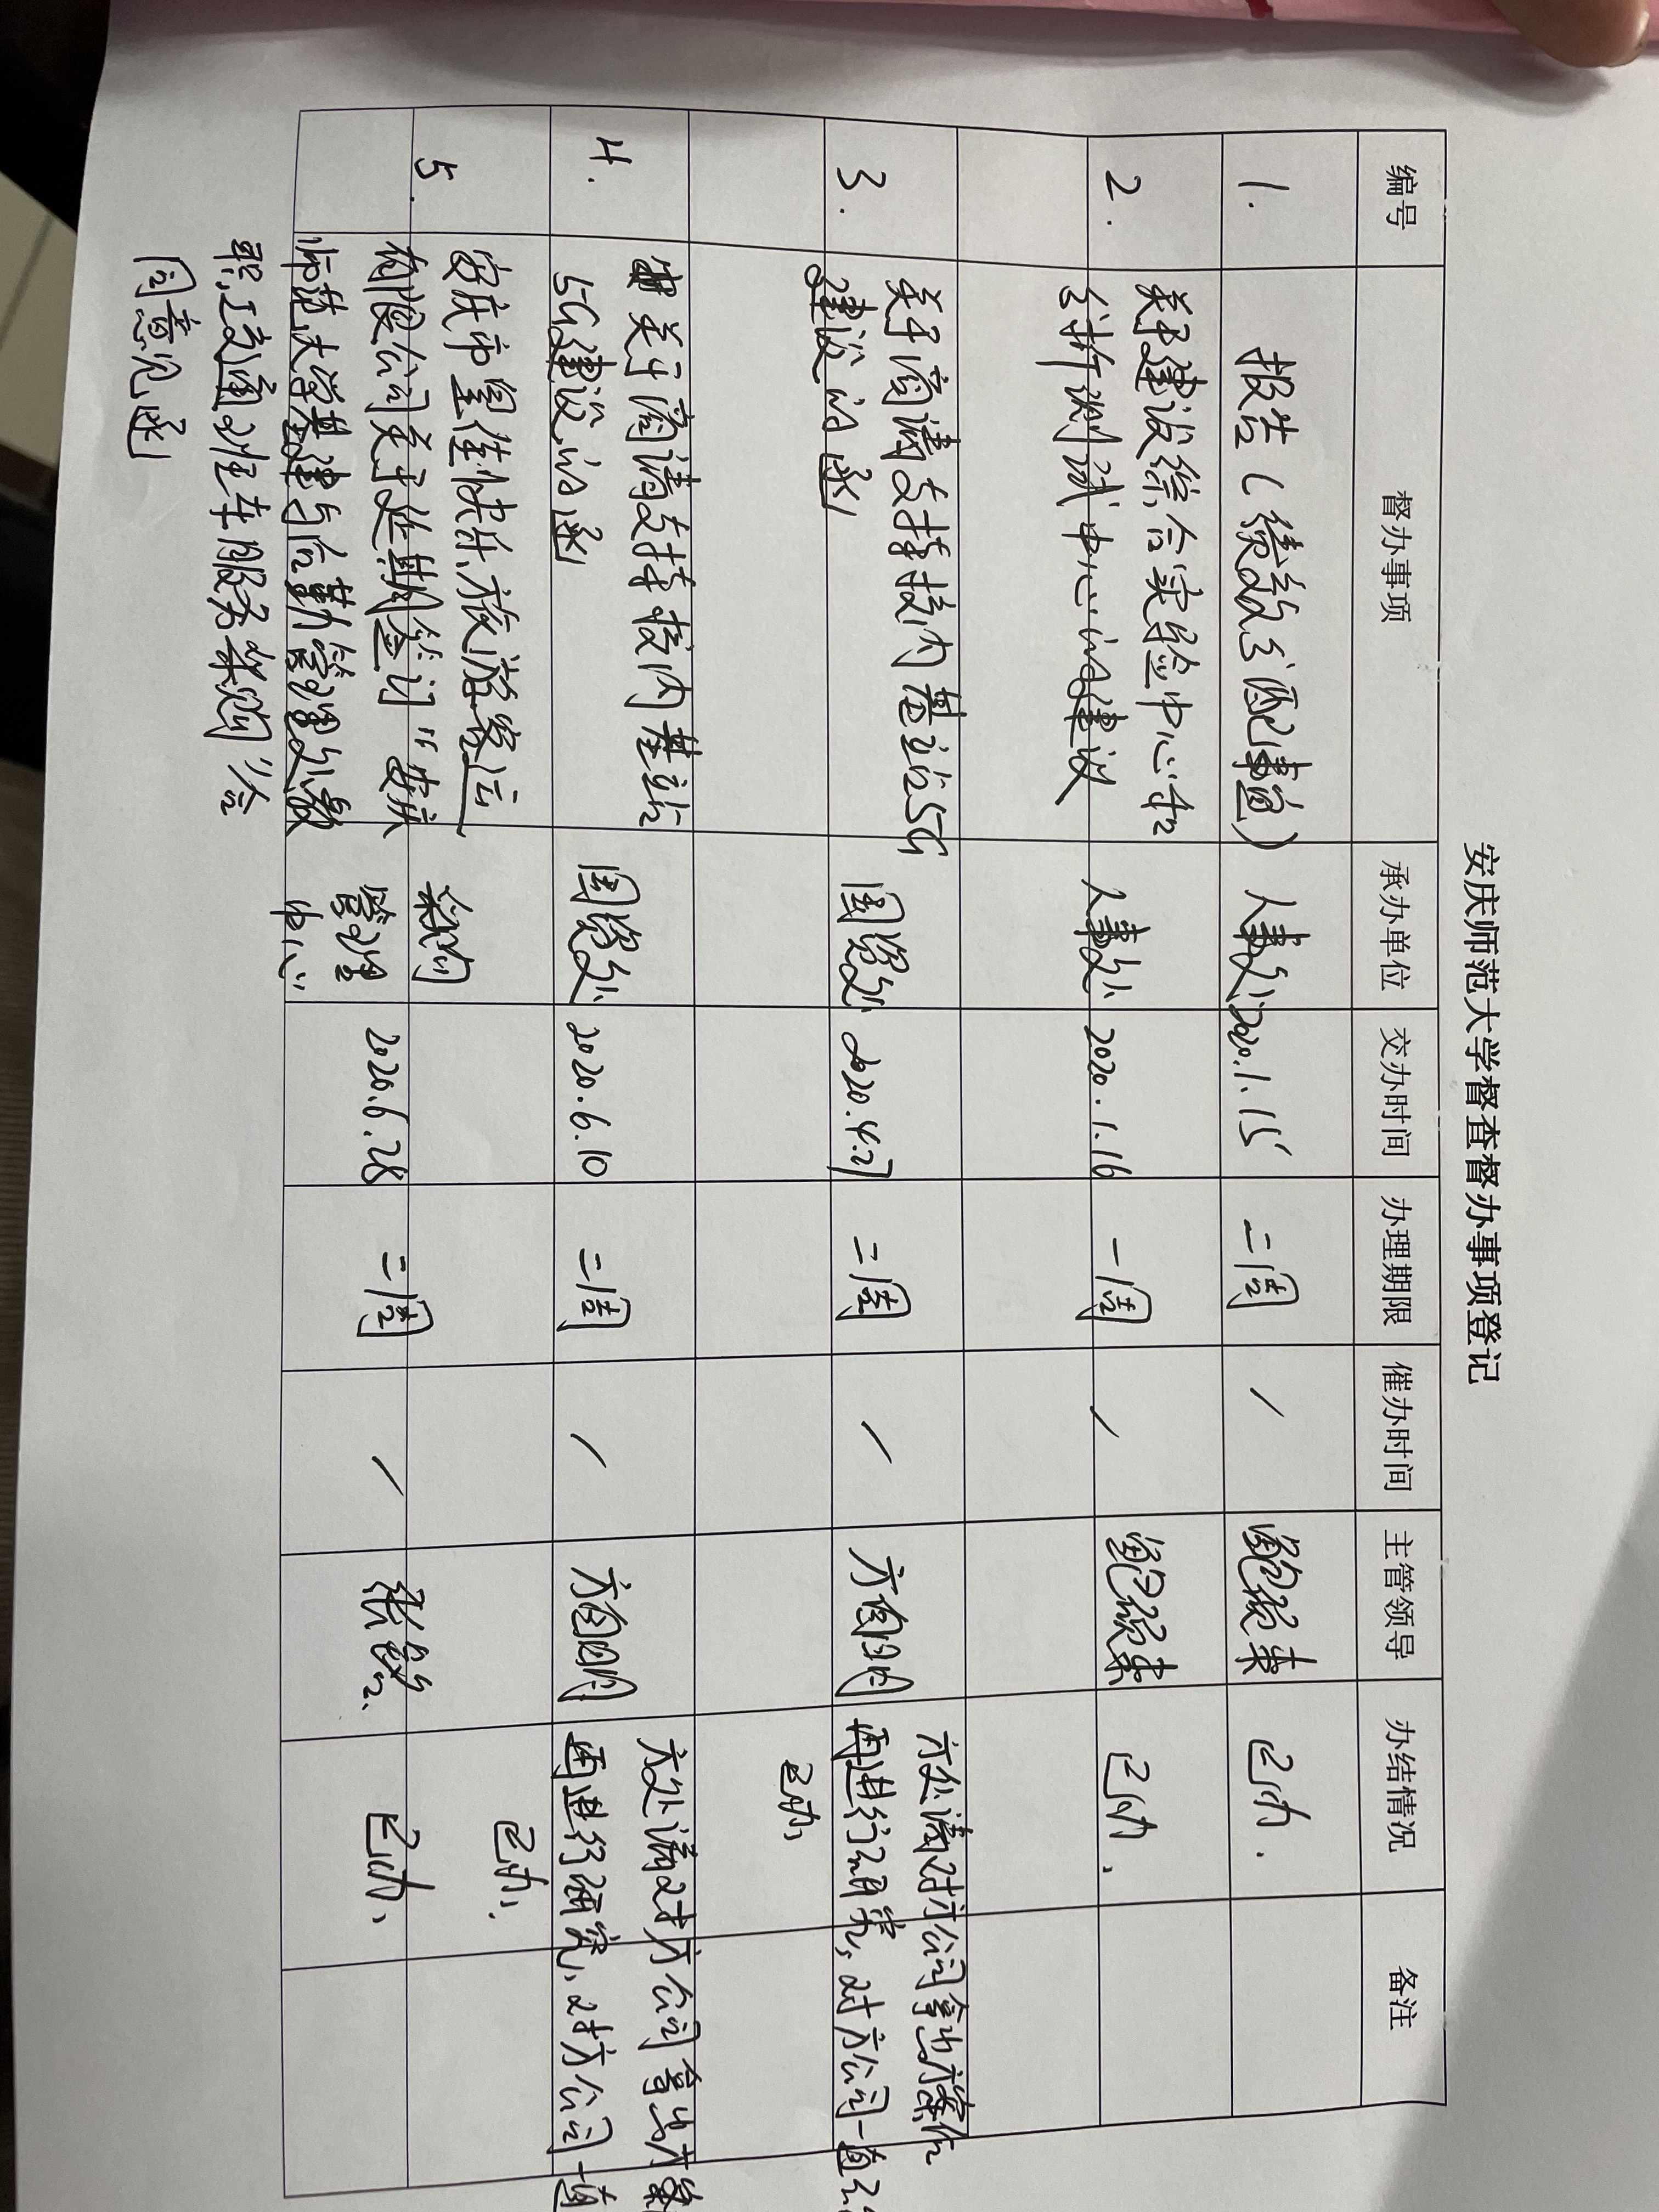 安庆师范大学督查督办事项登记
编号 督办事项 承办单位 交办时间 办理期限 催办时间 主管领导 办结情况 备注
1. 报告(绩效分配事宜) 人事处 2020.1.15 二周 / 鲍硕来 已办.
关于建设综合实验中心和
2. 分析测试中心的建议 人事处 2020.1.16 一周 / 鲍硕来 已办.
关于商请支持校内基站5G
3. 建设的函 国资处 2020.4.27 二周 / 方自明
方处请对方公司拿出方案后
再进行研究,对方公司一直
已办
关于商请支持校内基站
4. 5G建设的函 国资处 2020.6.10 二周 / 方自明
方处请对方公司拿出方案
再进行研究,对方公司一直
已办.
5. 安庆市皇佳快乐旅游客运
有限公司关于延期签订“安庆
师范大学基建与后勤管理处教
职工交通班车服务采购”合
同意见函
采购
管理
中心
2020.6.28 二周 / 张铭. 已办.